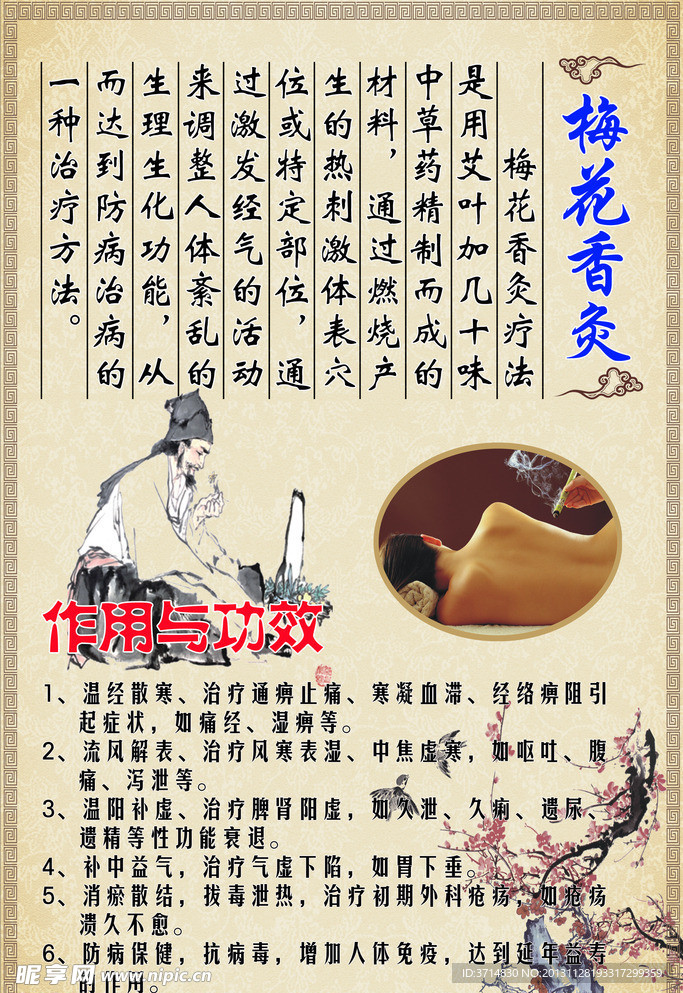 梅花香灸
梅花香灸疗法
是用艾叶加几十味
中草药精制而成的
材料，通过燃烧产
生的热刺激体表穴
位或特定部位，通
过激发经气的活动
来调整人体紊乱的
生理生化功能，从
而达到防病治病的
一种治疗方法。
作用与功效
1、温经散寒、治疗通痹止痛、寒凝血滞、经络痹阻引
起症状，如痛经、湿痹等。
2、流风解表、治疗风寒表湿、中焦虚寒，如呕吐、腹
痛、泻泄等。
3、温阳补虚、治疗脾肾阳虚，如久泄、久痢、遗尿、
遗精等性功能衰退。
4、补中益气，治疗气虚下陷，如胃下垂。
5、消瘀散结，拔毒泄热，治疗初期外科疮疡，如疮疡
溃久不愈。
6、防病保健，抗病毒，增加人体免疫，达到延年益寿
的作用。
昵享网 www.nipic.cn
ID:3714830 NO:20131128193317299359